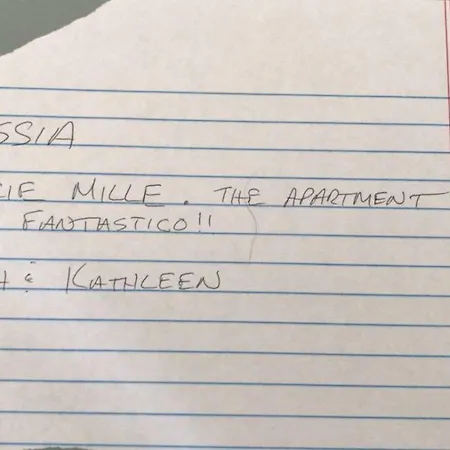 SSIA
CIE MILLE. THE APARTMENT
FANTASTICO!!
H & KATHLEEN